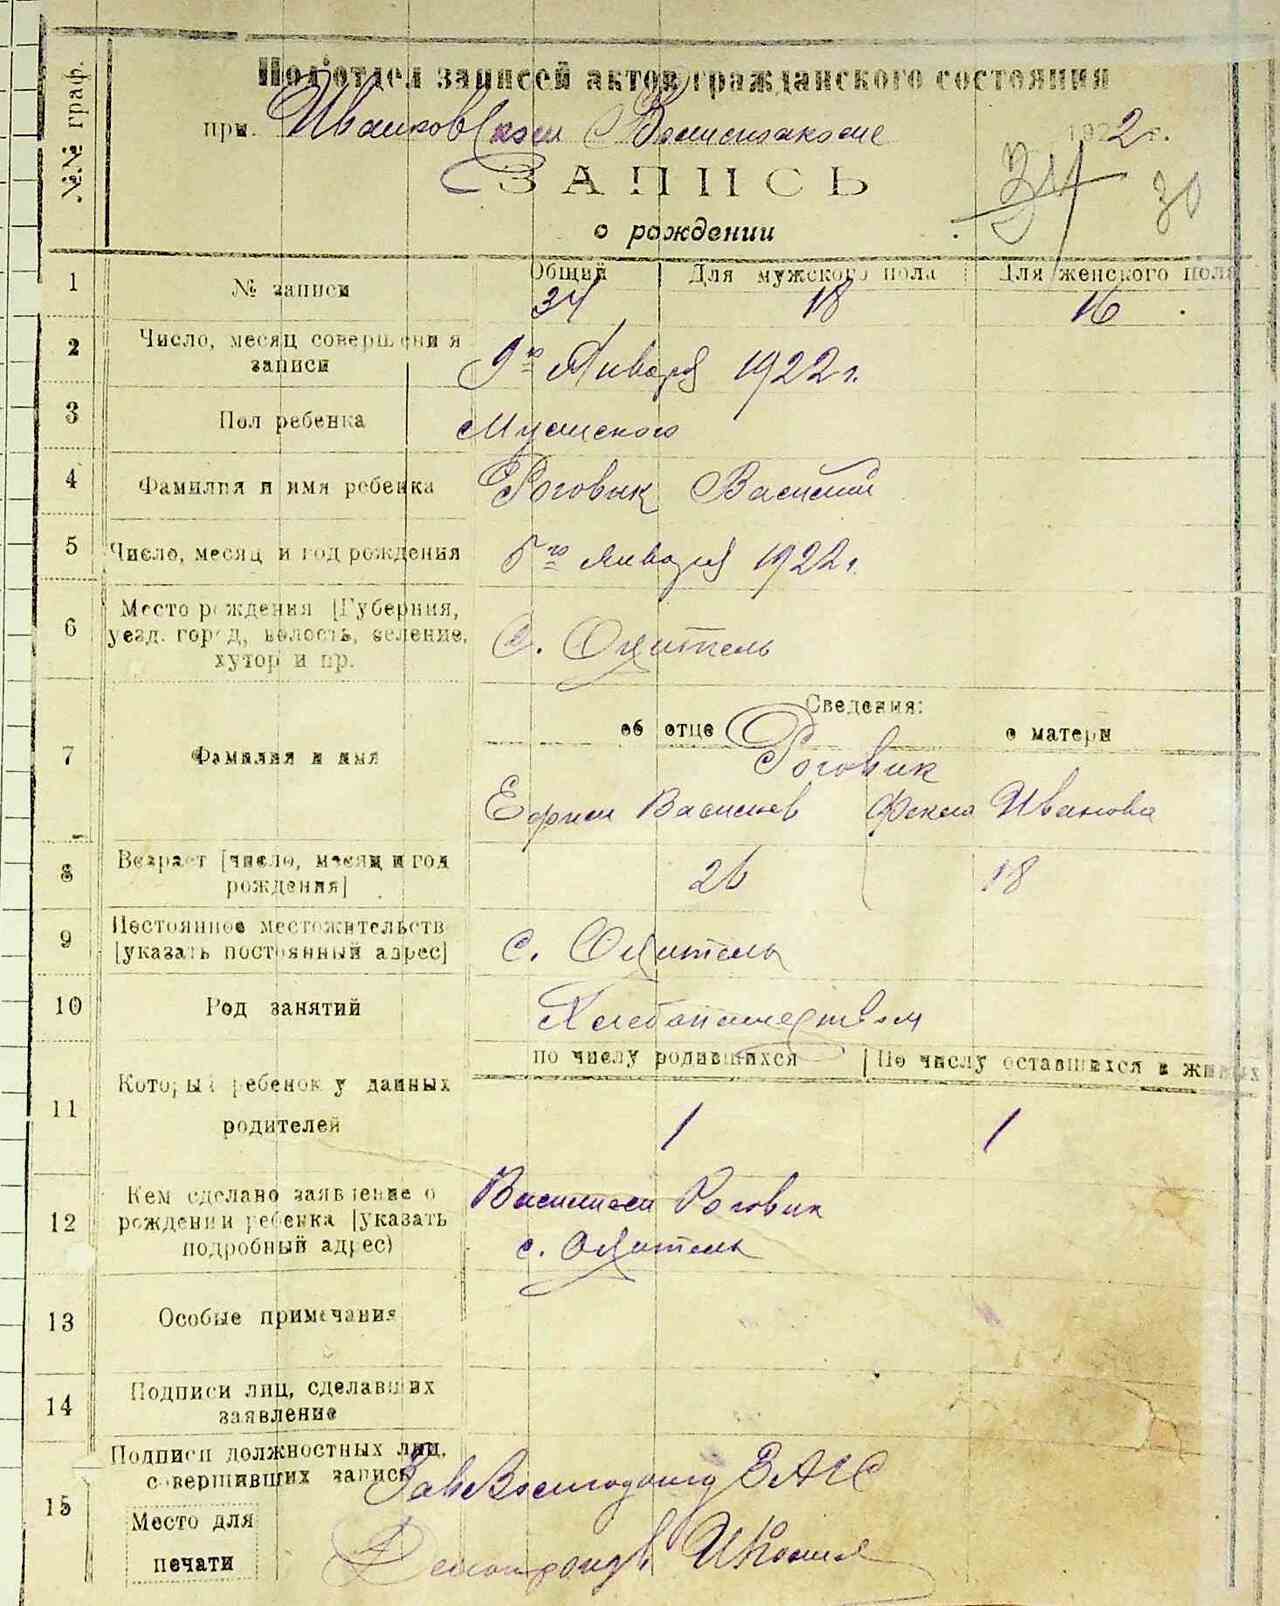 №№ граф.
Под'отдел записей актов гражданского состояния
при. Иванковской Волисполкоме 1922 г.
ЗАПИСЬ
о рождении
34
30
1 № записи
Общий Для мужского пола Для женского пола
34 18 16
2 Число, месяц совершения записи
9го Января 1922 г.
3 Пол ребенка
Мужского
4 Фамилия и имя ребенка
Роговык Василий
5 Число, месяц и год рождения
5го января 1922 г.
6 Место рождения [Губерния,
уезд. город, волость, селение,
хутор и пр.
с.
Сведения:
об отце о матери
7 Фамилия и имя
Роговик
Ефрем Васильев Фекла Иванова
8 Возраст [число, месяц и год
рождения]
26 18
9 Постоянное местожительств
[указать постоянный адрес]
с.
10 Род занятий
Хлебопашеством
по числу родившихся По числу оставшихся в живых
11 Который ребенок у данных
родителей
1 1
12 Кем сделано заявление о
рождении ребенка [указать
подробный адрес)
Роговик
с.
13 Особые примечания
14 Подписи лиц, сделавших
заявление
15 Подписи должностных лиц,
совершивших запись
ЗАГС
Место для
печати